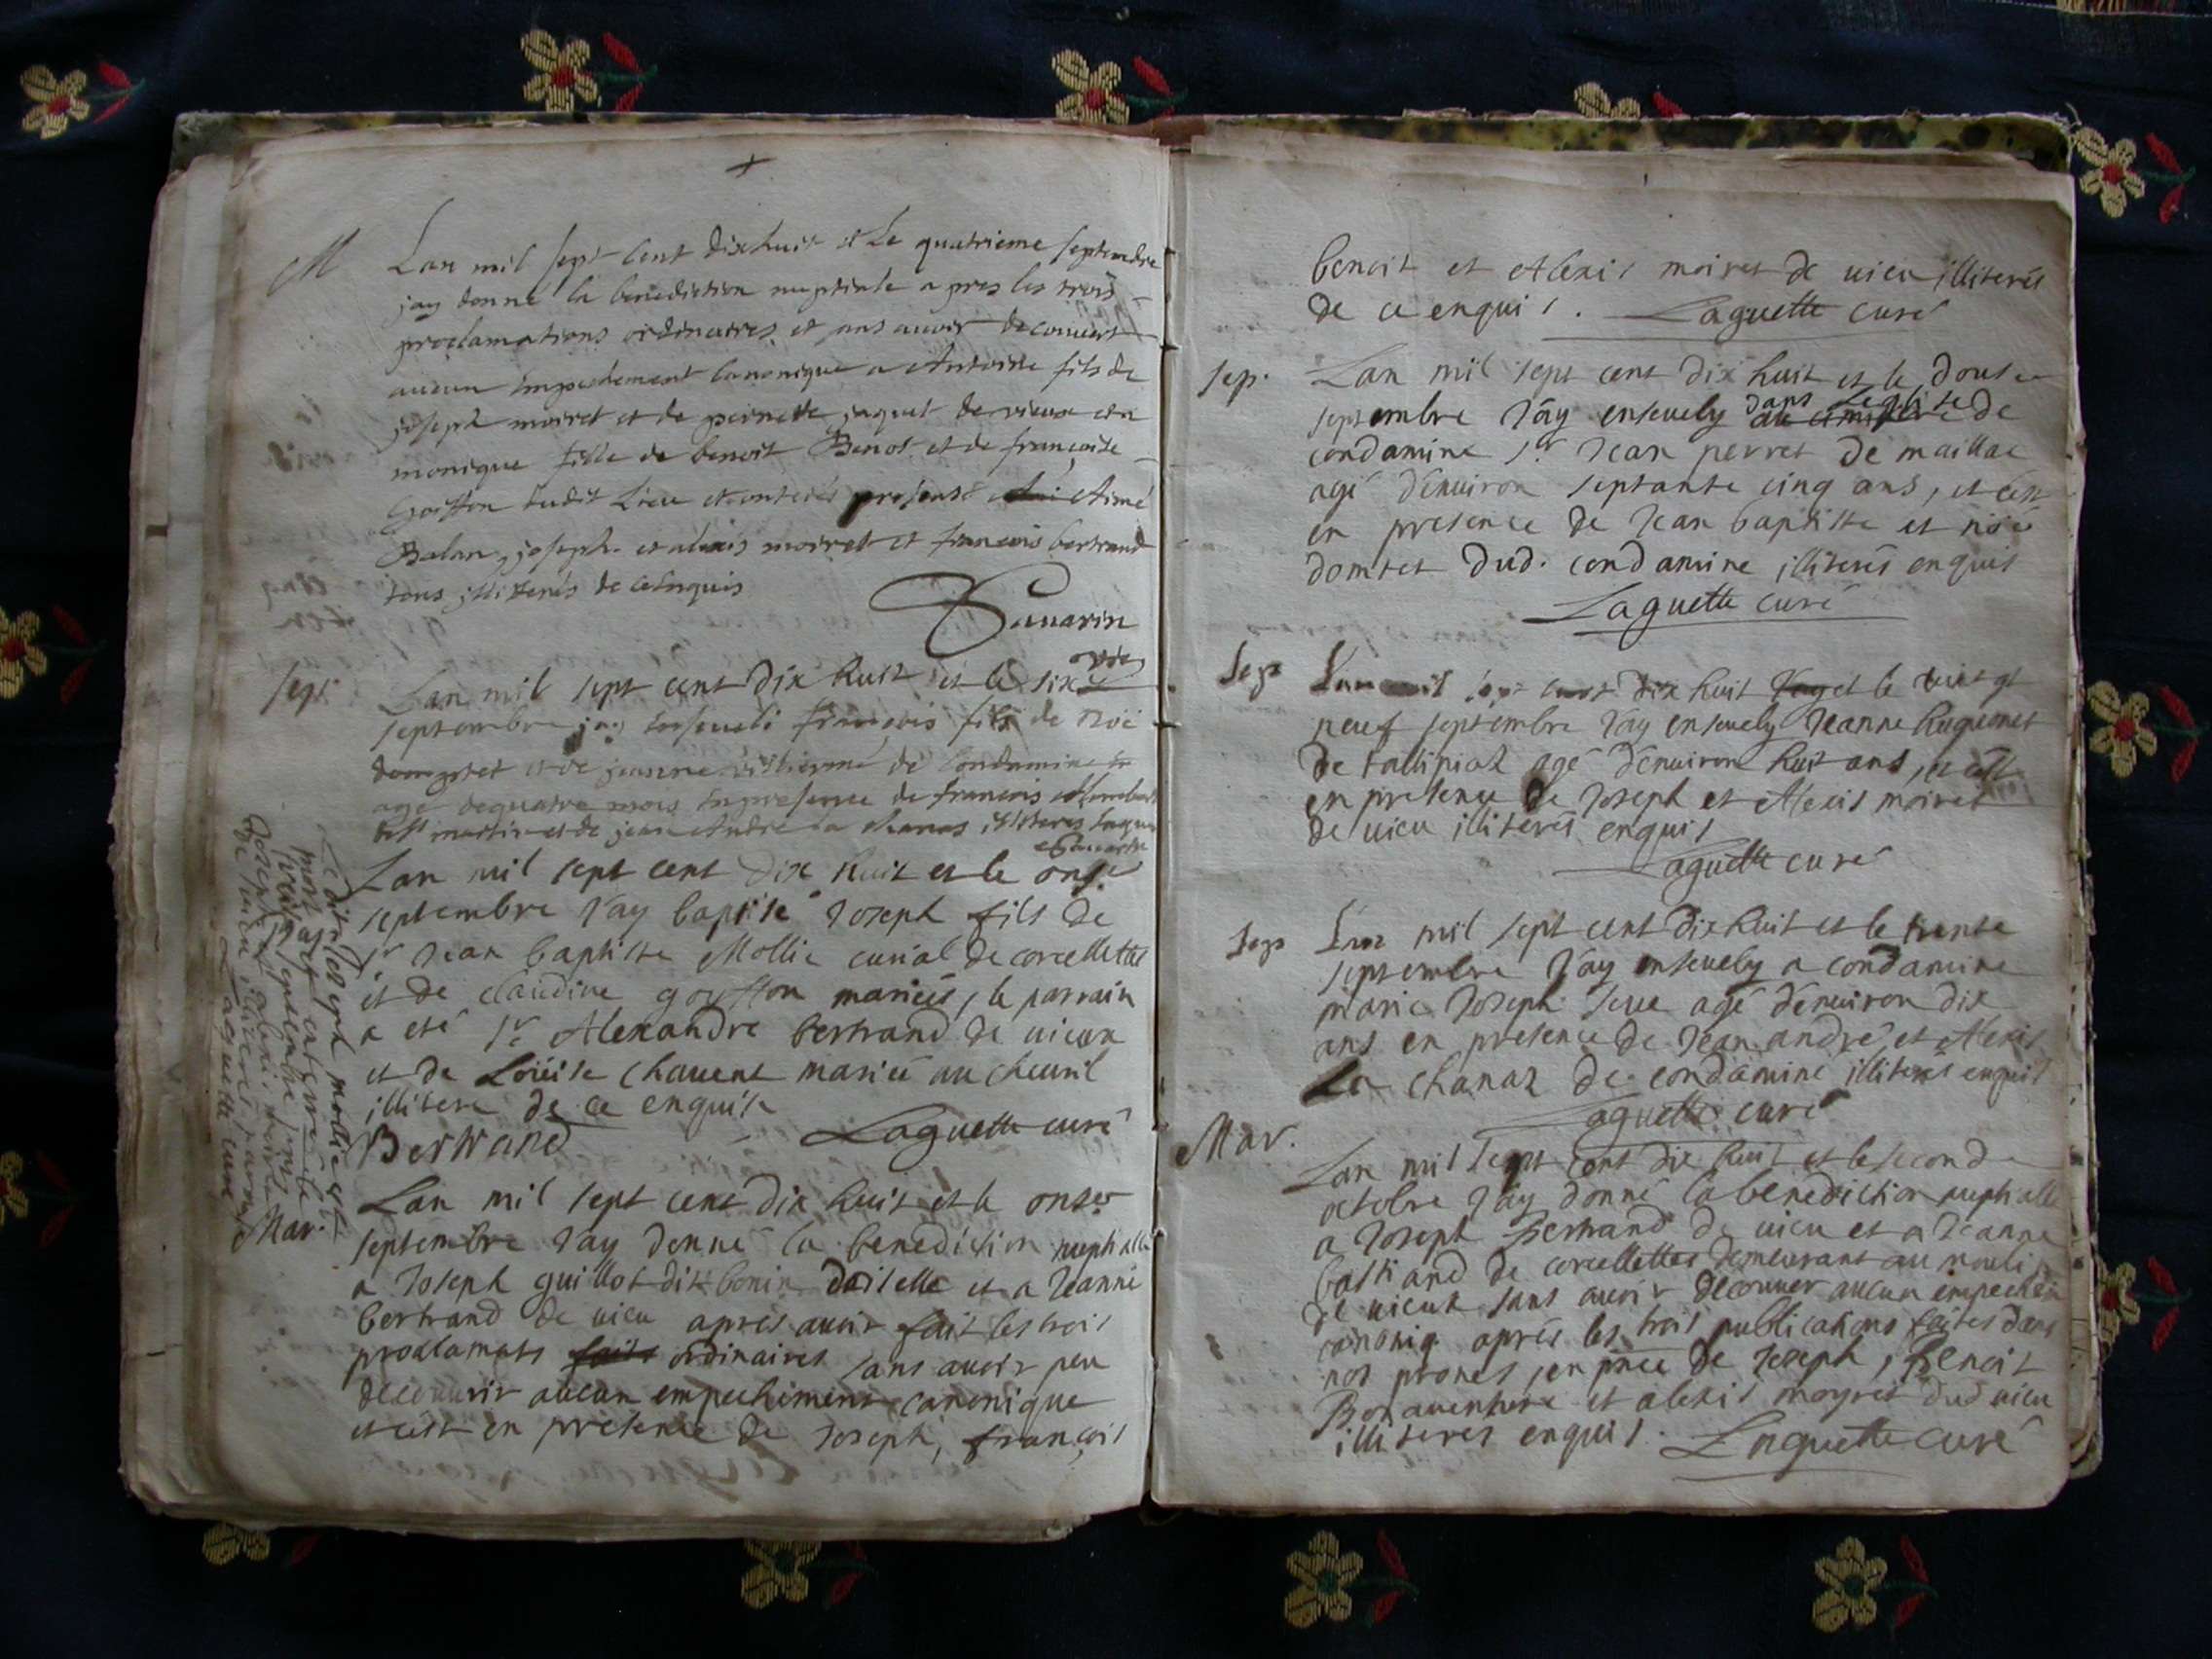 M
Lan mil sept cent dixhuit et Le quatrieme septembre
jay donné la benediction nuptiale apres les trois
proclamations ordinaires et sans avoir decouvert
aucun empechement canonique a Antoine fils de
joseph moiret et de pernette jaquet de vieux et a
monique fille de benoit Benot et de françoise
goiffon dudit Lieu et ont etés presens Aimé
Balan, joseph et alexis moiret et francois bertrand
tous illiterés de ce enquis
Savarin
sep.
Lan mil sept cent dix huit et le six
septembre jay enseveli francois fils de Noé
domptet et de jeanne de Condamine
agé de quatre mois en presence de francois
martin et de jean André la chanas illiteres enquis
Savarin
Lan mil sept cent dix huit et le onze
septembre Jay baptisé Joseph fils de
Sr Jean baptiste Mollie curial de corcellette
et de claudine goyffon mariés, le parrain
a eté Sr Alexandre bertrand de uieux
et de Loüise Chauent mariée au cheuril
illitere de ce enquise
Bertrand Laguette curé
Ledit Joseph mollie est
mort et
septembre
Joseph et alexis
de vieu illiteres
Laguette curé
Mar.
Lan mil sept cent dix huit et le onze
septembre Jay donné la benediction nuptialle
a Joseph guillot dit bonin doiselle et a Jeanne
bertrand de uieu apres auoir fait les trois
proclamats faits ordinaires sans auoir peu
decouurir aucun empechement canonique
et cest en presence de Joseph, françois
benoit et Alexis moiret de uieu illiterés
de ce enquis. Laguette curé
sep.
Lan mil sept cent dix huit et le douse
septembre Jay enseuely au cimitere dans Leglise de
condamine Sr Jean perret de maillac
agé denuiron septante cinq ans, et cest
en presence de Jean baptiste et noé
domtet dud. condamine illiterés enquis
Laguette curé
Sep
Lan mil sept cent dix huit Jay et le uint et
neuf septembre Jay enseuely Jeanne huguenet
de fallipiaz agé denuiron huit ans, et cest
en presence de Joseph et Alexis moiret
de uieu illiterés enquis
Laguette curé
Sep
Lan mil sept cent dix huit et le trente
septembre Jay enseuely a condamine
marie Joseph seue agé denuiron dix
ans en presence de Jean andré et Alexis
La chanaz de condamine illiterés enquis
Laguette curé
Mar.
Lan mil sept cent dix huit et le second
octobre Jay donné la benediction nuptialle
a Joseph Bertrand de uieu et a Jeanne
bastiand de corcellettes demeurant au mouli
de uieux sans auoir decouuer aucun empechem
canoniq. aprés les trois publications faites dans
nos prones, en pnce de Joseph, Benoit
Bonauenture et alexis moyret dud uieu
illiteres enquis. Laguette curé